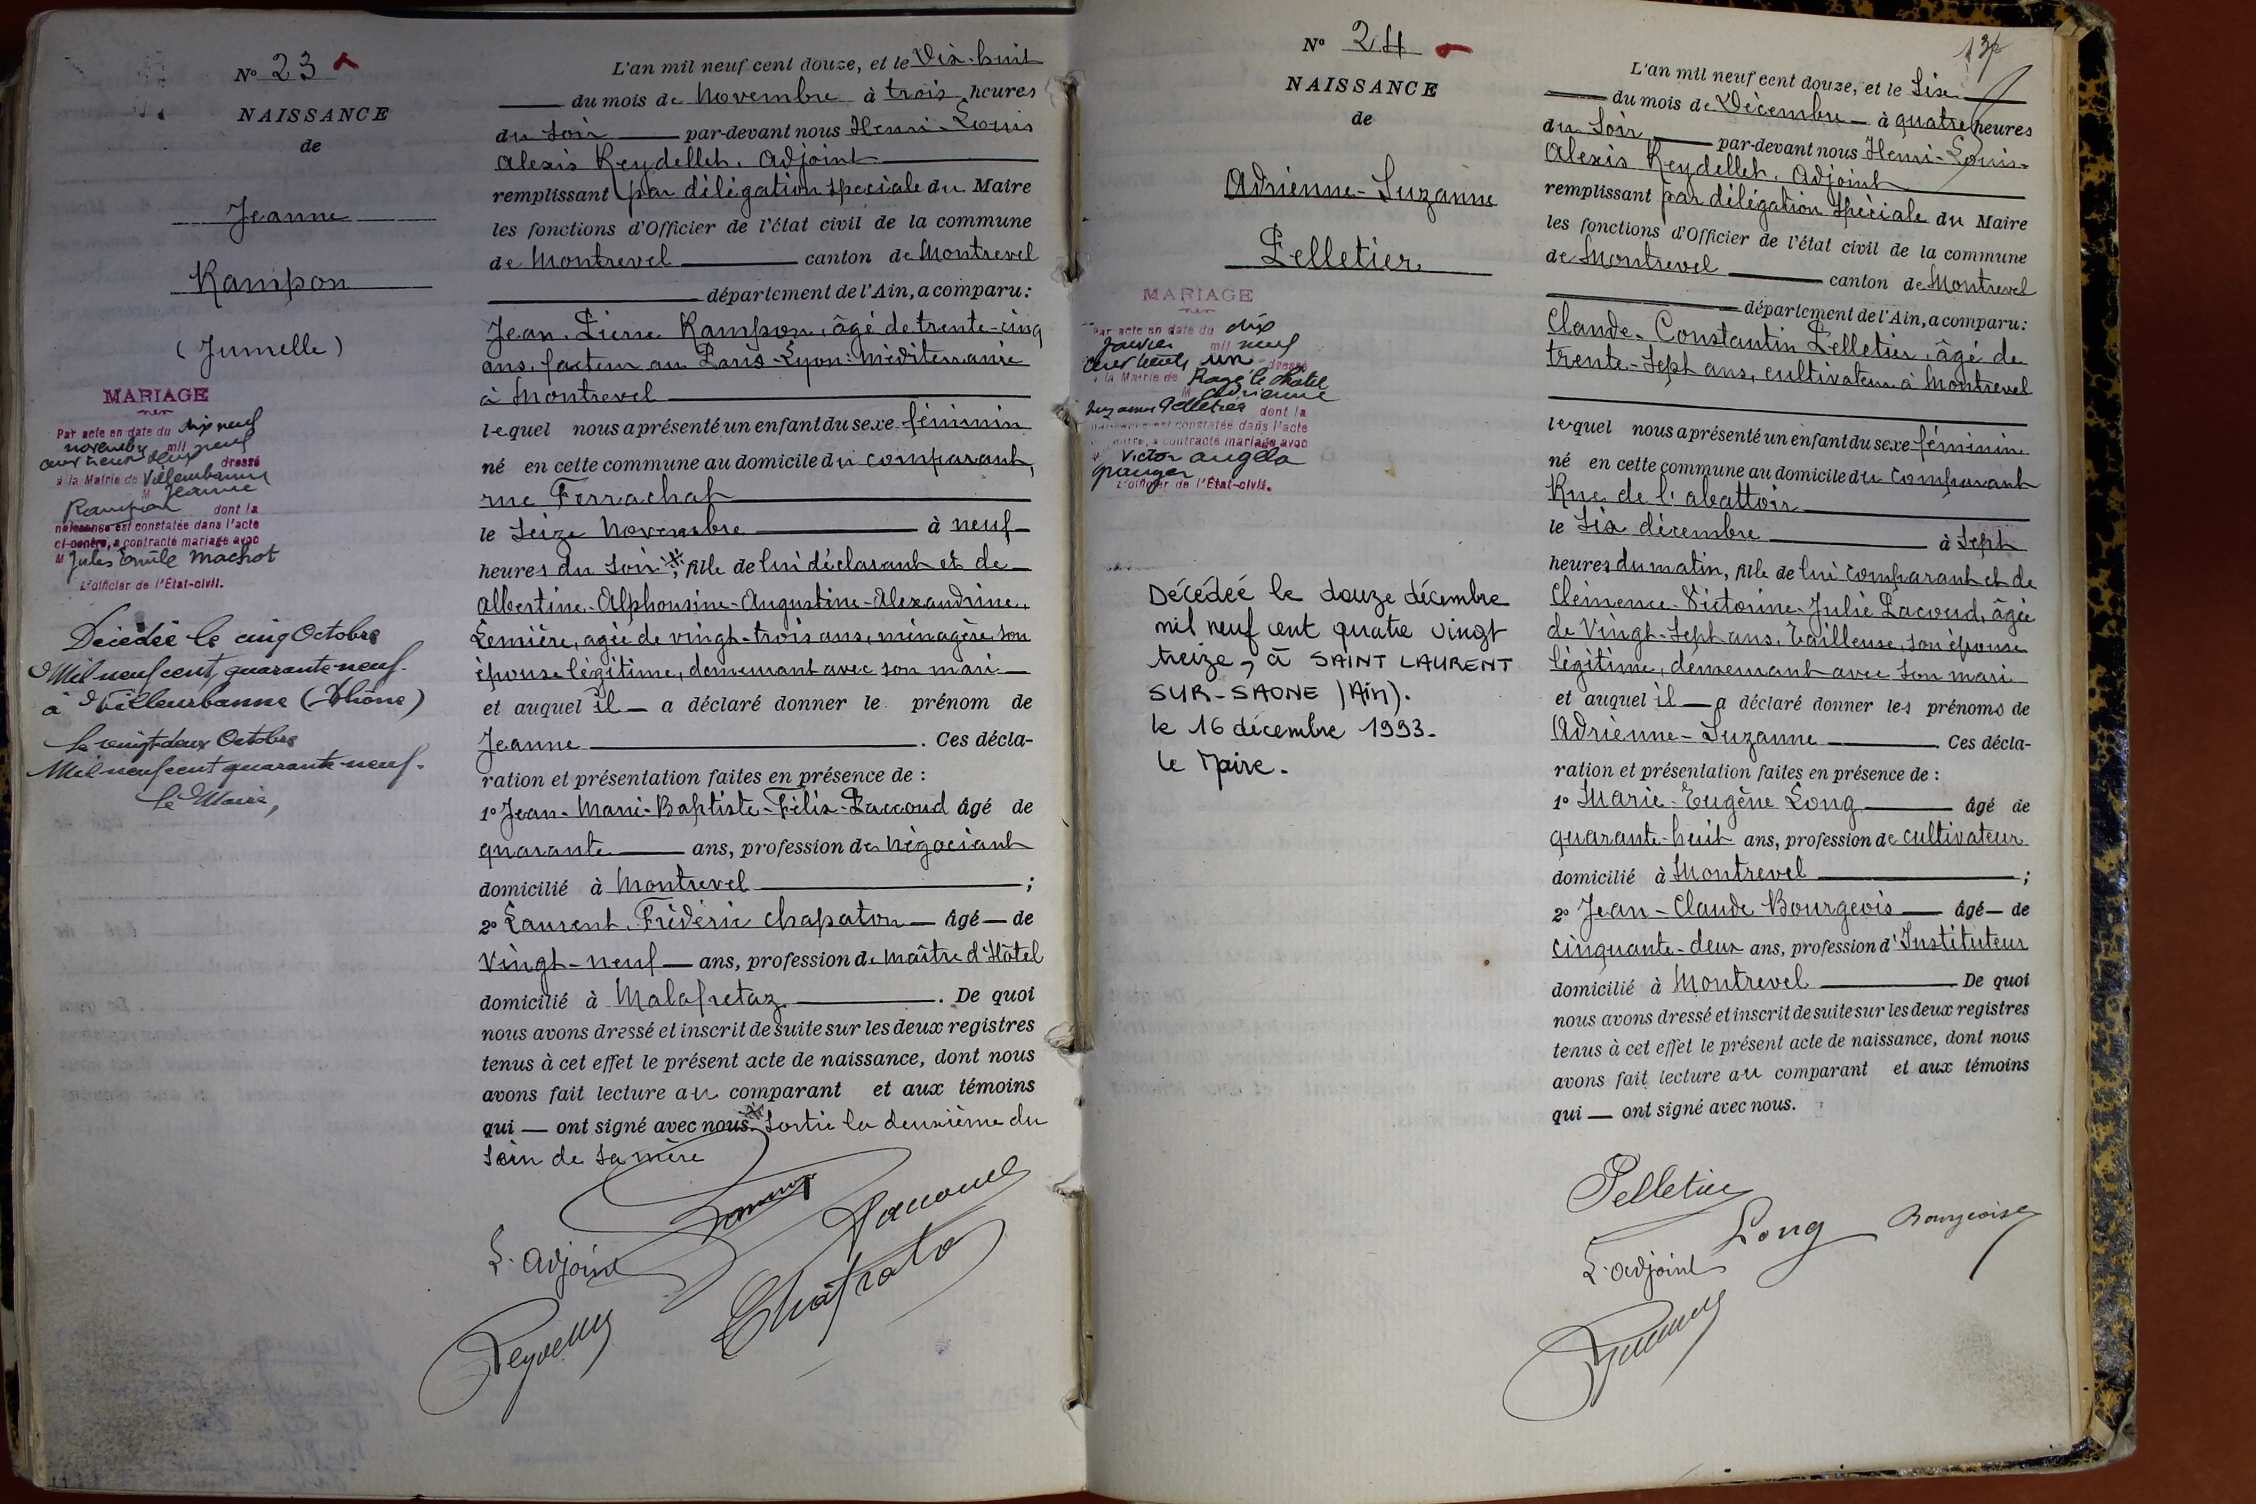 N° 23
NAISSANCE
de
Jeanne
Rampon
(Jumelle)
MARIAGE
Par acte en date du dix neuf
novembre mil neuf
cent trente deux dressé
à la Mairie de Villeurbanne
M Jeanne
Rampon dont la
naissance est constatée dans l'acte
ci-contre, a contracté mariage avec
M Jules Emile Machot
L'officier de l'Etat-civil.
Décédée le cinq Octobre
Mil neuf cent quarante-neuf.
à Villeurbanne (Rhône)
Le vingt-deux Octobre
Mil neuf cent quarante-neuf.
Le Maire,
L'an mil neuf cent douze, et le Dix-huit
du mois de Novembre à trois heures
du Soir par-devant nous Henri-Louis
Alexis Reydellet, Adjoint
remplissant par délégation spéciale du Maire
les fonctions d'Officier de l'état civil de la commune
de Montrevel canton de Montrevel
département de l'Ain, a comparu :
Jean-Pierre Rampon, âgé de trente-cinq
ans, facteur au Paris-Lyon-Méditerranée
à Montrevel
lequel nous a présenté un enfant du sexe féminin
né en cette commune au domicile du comparant,
rue Ferrachat
le Seize Novembre à neuf
heures du Soir, fille de lui déclarant et de
Albertine-Alphonsine-Augustine-Alexandrine
Lemière, agée de vingt-trois ans, ménagère son
épouse légitime, demeurant avec son mari
et auquel il a déclaré donner le prénom de
Jeanne . Ces décla-
ration et présentation faites en présence de :
1° Jean-Marie-Baptiste-Félix-Paccoud âgé de
quarante ans, profession de Négociant
domicilié à Montrevel ;
2° Laurent, Frédéric Chapaton âgé de
Vingt-neuf ans, profession de Maître d'Hôtel
domicilié à Malafretaz . De quoi
nous avons dressé et inscrit de suite sur les deux registres
tenus à cet effet le présent acte de naissance, dont nous
avons fait lecture au comparant et aux témoins
qui ont signé avec nous. Sortie la deuxième du
Sein de Sa mère
L'Adjoint
N° 24
NAISSANCE
de
Adrienne-Suzanne
Pelletier
MARIAGE
Par acte en date du dix
janvier mil neuf
cent trente un dressé
à la Mairie de
M Adrienne
Suzanne Pelletier dont la
naissance est constatée dans l'acte
a contracté mariage avec
Victor Angelo
L'officier de l'Etat-civil.
Décédée le douze décembre
mil neuf cent quatre vingt
treize, à SAINT LAURENT
SUR-SAONE (Ain).
le 16 décembre 1993.
le Maire.
L'an mil neuf cent douze, et le Six
du mois de Décembre à quatre heures
du Soir par-devant nous Henri-Louis-
Alexis Reydellet, Adjoint
remplissant par délégation spéciale du Maire
les fonctions d'Officier de l'état civil de la commune
de Montrevel canton de Montrevel
département de l'Ain, a comparu :
Claude-Constantin Pelletier, âgé de
trente-Sept ans, cultivateur à Montrevel
lequel nous a présenté un enfant du sexe féminin
né en cette commune au domicile du Comparant
Rue de l'abattoir
le Six décembre à Sept
heures du matin, fille de lui comparant et de
Clémence-Victorine-Julie Pacoud, âgée
de Vingt-Sept ans, Tailleuse, son épouse
légitime, demeurant avec Son mari
et auquel il a déclaré donner les prénoms de
Adrienne-Suzanne . Ces décla-
ration et présentation faites en présence de :
1° Marie-Eugène Long âgé de
quarante-huit ans, profession de cultivateur
domicilié à Montrevel ;
2° Jean-Claude Bourgeois âgé de
cinquante-deux ans, profession d'Instituteur
domicilié à Montrevel De quoi
nous avons dressé et inscrit de suite sur les deux registres
tenus à cet effet le présent acte de naissance, dont nous
avons fait lecture au comparant et aux témoins
qui ont signé avec nous.
Pelletier
Long Bourgeois
L'adjoint